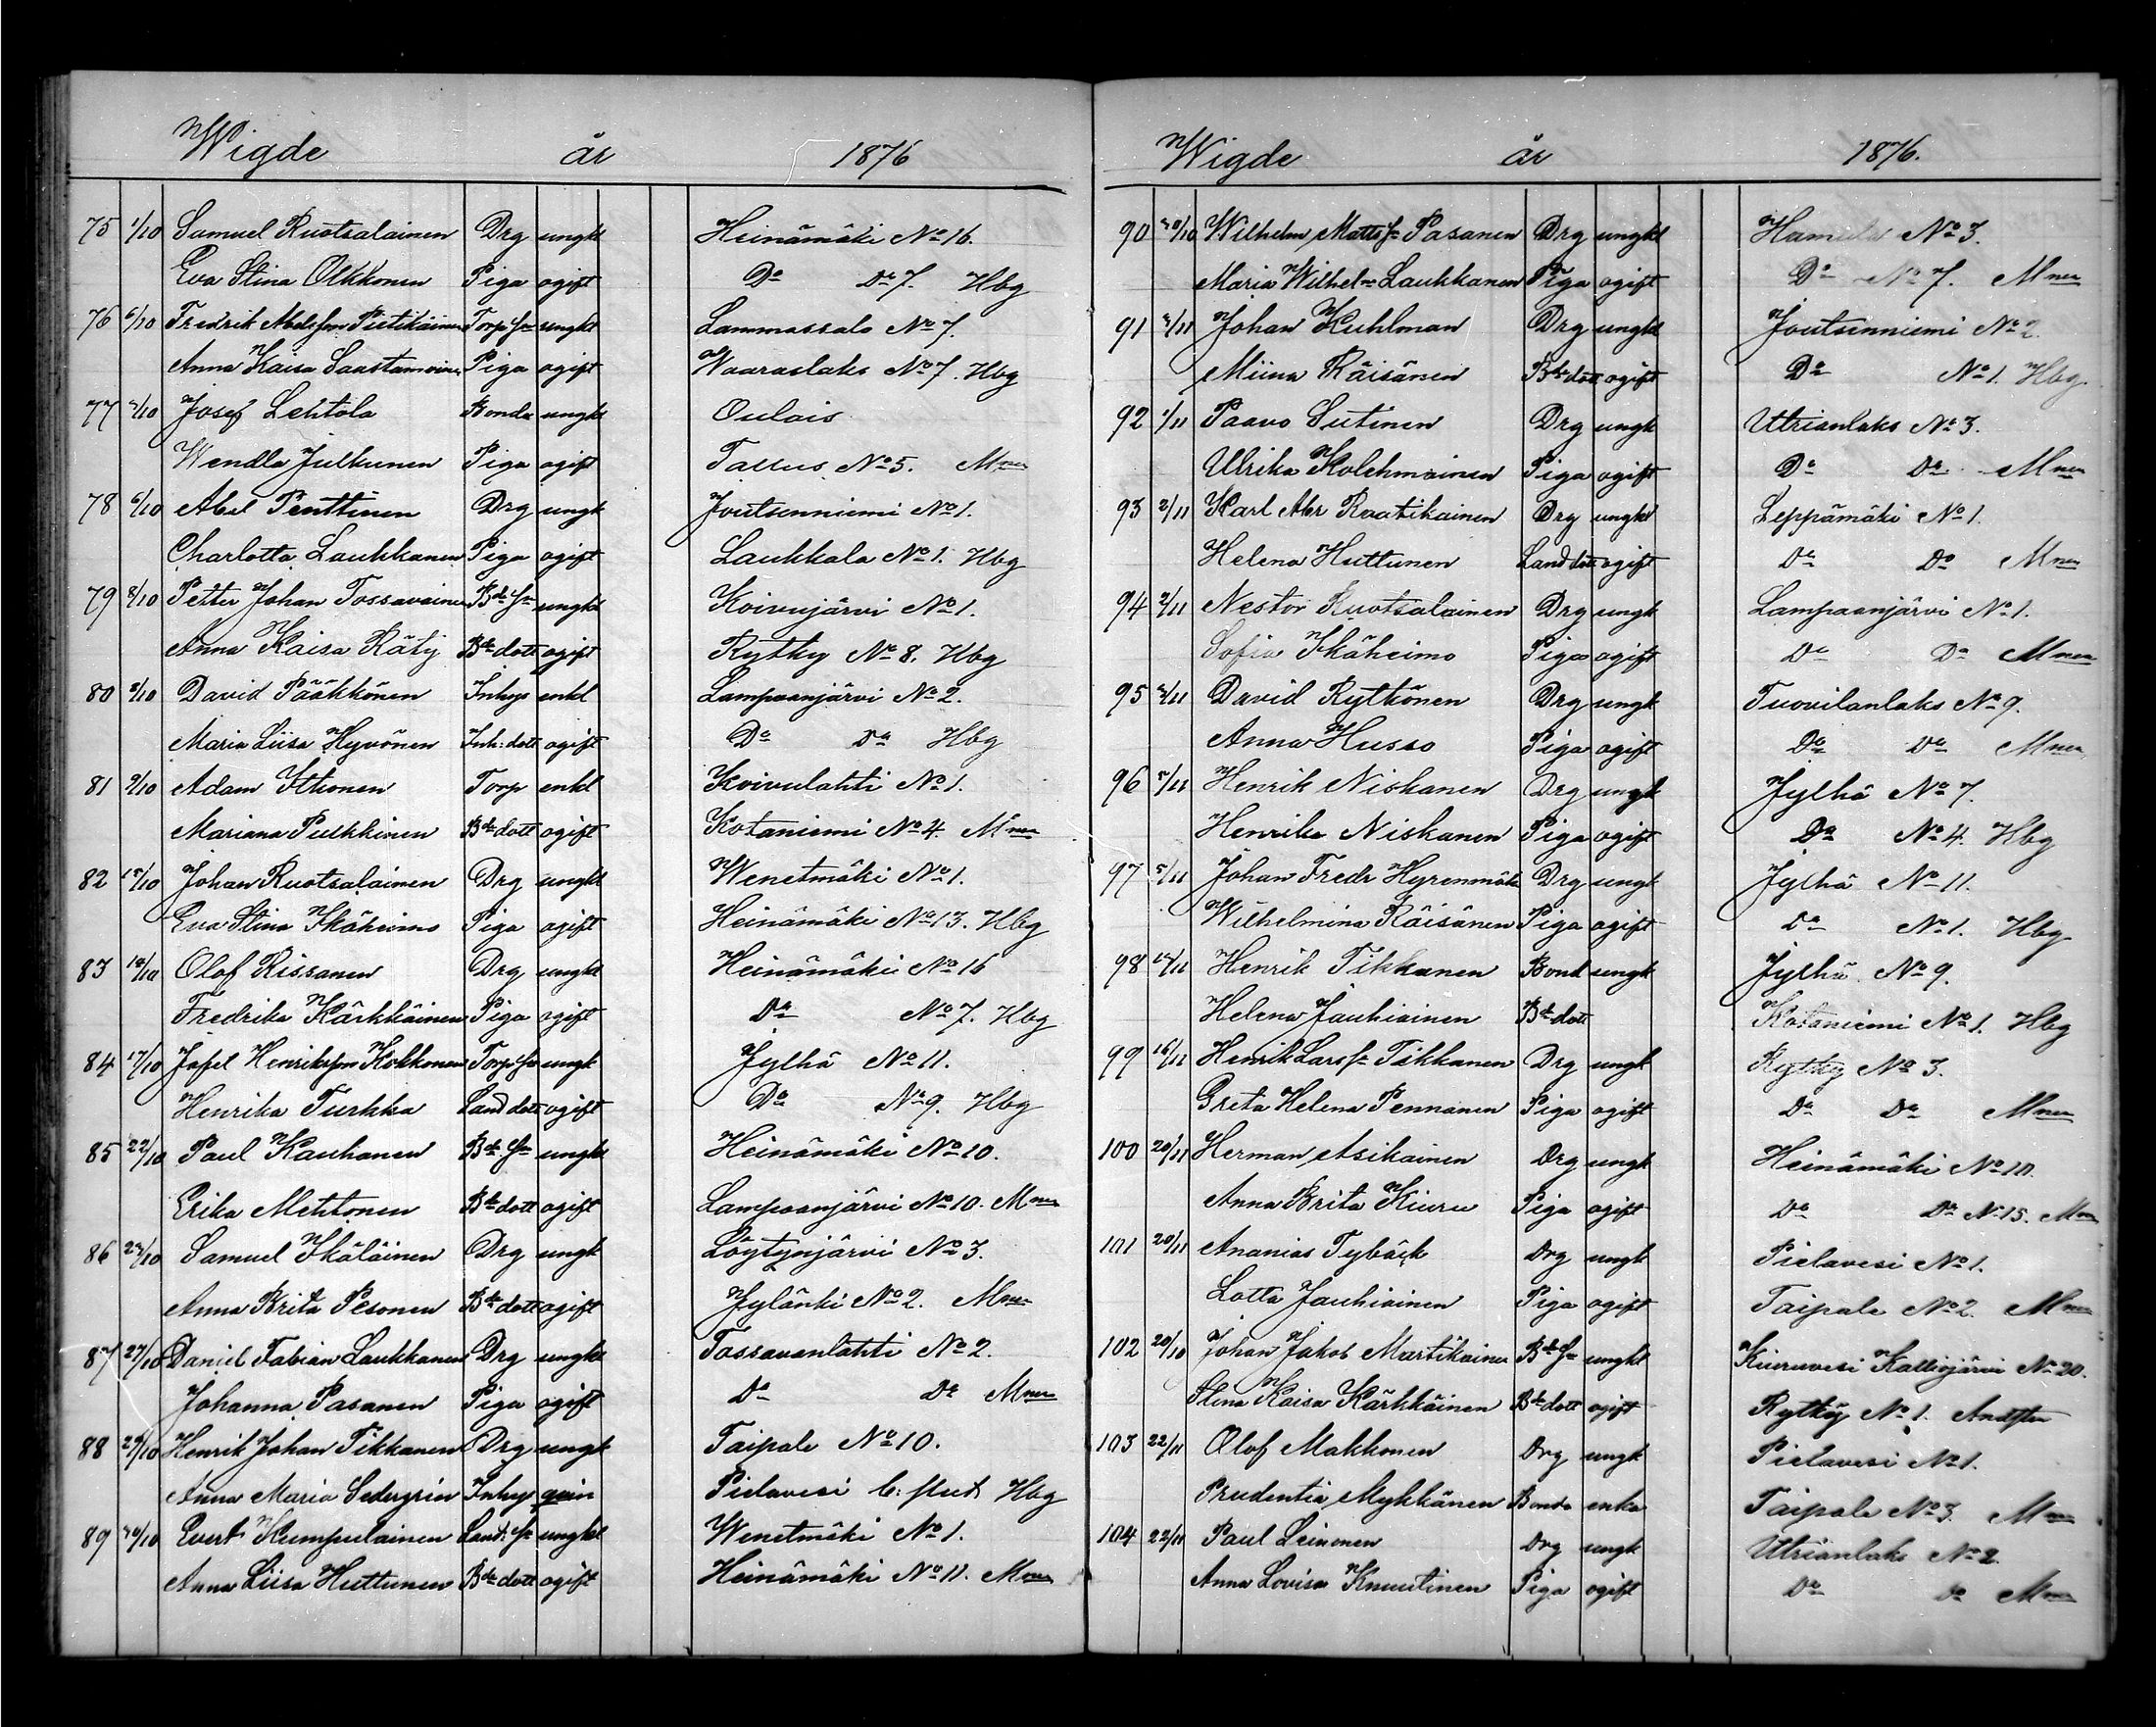 Wigde år 1876
75 1/10 Samuel Ruotsalainen Drg ungkl Heinämäki No 16.
Eva Stina Olkkonen Piga ogift Do Do 7. Hbg
76 6/10 Fredrik Abelsson Pietikäinen Torp sn ungkl Lammassalo No 7.
Anna Kaisa Saastamoinen Piga ogift Waaraslaks No 7. Hbg
77 /10 Josef Lehtola Bonde ungkl Oulais
Wendla Julkunen Piga ogift Tallus No 5. Mnen
78 6/10 Abel Penttinen Drg ungk Joutsenniemi No 1.
Charlotta Laukkanen Piga ogift Laukkala No 1. Hbg
79 8/10 Petter Johan Tossavainen Bde sn ungkl Koivujärvi No 1.
Anna Kaisa Räty Bde dott ogift Rytky No 8. Hbg
80 /10 David Pääkkönen Inhys enkl Lampaanjärvi No 2.
Maria Liisa Hyvönen Inh: dott ogift Do Do Hbg
81 9/10 Adam Ittonen Torp enkl Koivulahti No 1.
Mariana Puikkinen Bde dott ogift Kotaniemi No 4. Mnen
82 15/10 Johan Ruotsalainen Drg ungkl Wenetmäki No 1.
Eva Stina Skäheimo Piga ogift Heinämäki No 13. Hbg
83 /10 Olof Rissanen Drg ungkl Heinämäki No 16
Fredrika Kärkkäinen Piga ogift Do No 7. Hbg
84 17/10 Josef Henriksson Kokkonen Torp sn ungk Jylhä No 11.
Henrika Turkka Land dott ogift Do No 9. Hbg
85 22/10 Paul Kauhanen Bde sn ungkl Heinämäki No 10.
Erika Mehtonen Bde dott ogift Lampaanjärvi No 10. Mnen
86 /10 Samuel Skäläinen Drg ungk Löytynjärvi No 3.
Anna Brita Pesonen Bde dott ogift Jylänki No 2. Mnen
87 27/10 Daniel Fabian Laukkanen Drg ungkl Tossavanlahti No 2.
Johanna Pasanen Piga ogift Do Do Mnen
88 29/10 Henrik Johan Tikkanen Drg ungk Taipale No 10.
Anna Maria Sedergrin Inhys Pielavesi Hbg
89 /10 Evert Kumpulainen Land. sn ungkl Wenetmäki No 1.
Anna Liisa Huttunen Bde dott ogift Heinämäki No 11. Mnen
Wigde år 1876.
90 /10 Wilhelm Matts sn Pasanen Drg ungkl Hamula No 3.
Maria Wilhelna Laukkanen Piga ogift Do No 7. Mnen
91 /11 Johan Kuhlman Drg ungkl Joutsenniemi No 2.
Miina Räisänen Bde dott ogift Do No 1. Hbg.
92 1/11 Paavo Sutinen Drg ungk Utrianlaks No 3.
Ulrika Kolehmainen Piga ogift Do Do Mnen
93 2/11 Karl Abr Raatikainen Drg ungkl Leppämäki No 1.
Helena Huttunen Land dott ogift Do Do Mnen
94 2/11 Nestor Ruotsalainen Drg ungk Lampaanjärvi No 1.
Sofia Skäheimo Piga ogift Do Do Mnen
95 /11 David Rytkönen Drg ungk Tuovilanlaks No 9.
Anna Husso Piga ogift Do Do Mnen
96 5/11 Henrik Niskanen Drg ungk Jylhä No 7.
Henrika Niskanen Piga ogift Do No 4. Hbg
97 5/11 Johan Fredr Hyrenmäki Drg ungk Jylhä No 11.
Wilhelmina Räisänen Piga ogift Do No 1. Hbg
98 /11 Henrik Tikkanen Bond ungk Jylhä No 9.
Helena Jauhiainen Bde dott Kotaniemi No 1. Hbg
99 16/11 Henrik Lars sn Tikkanen Drg ungk Rytky No 3.
Greta Helena Pennanen Piga ogift Do Do Mnen
100 20/11 Herman Asikainen Drg ungk Heinämäki No 10.
Anna Brita Kiuru Piga ogift Do Do No 15. Mnen
101 20/11 Ananias Tybäck Drg ungk Pielavesi No 1.
Lotta Jauhiainen Piga ogift Taipale No 2. Mnen
102 20/10 Johan Jakob Martikainen Bde sn ungkl Kiuruvesi Kalliojärvi No 20.
Stina Kaisa Kärkkäinen Bde dott ogift Rytky No 1.
103 22/11 Olof Makkonen Drg ungk Pielavesi No 1.
Prudentia Mykkänen Bonde enka Taipale No 3. Mnen
104 22/11 Paul Leinonen Drg ungk Utrianlaks No 2.
Anna Lovisa Knuutinen Piga ogift Do Do Mnen